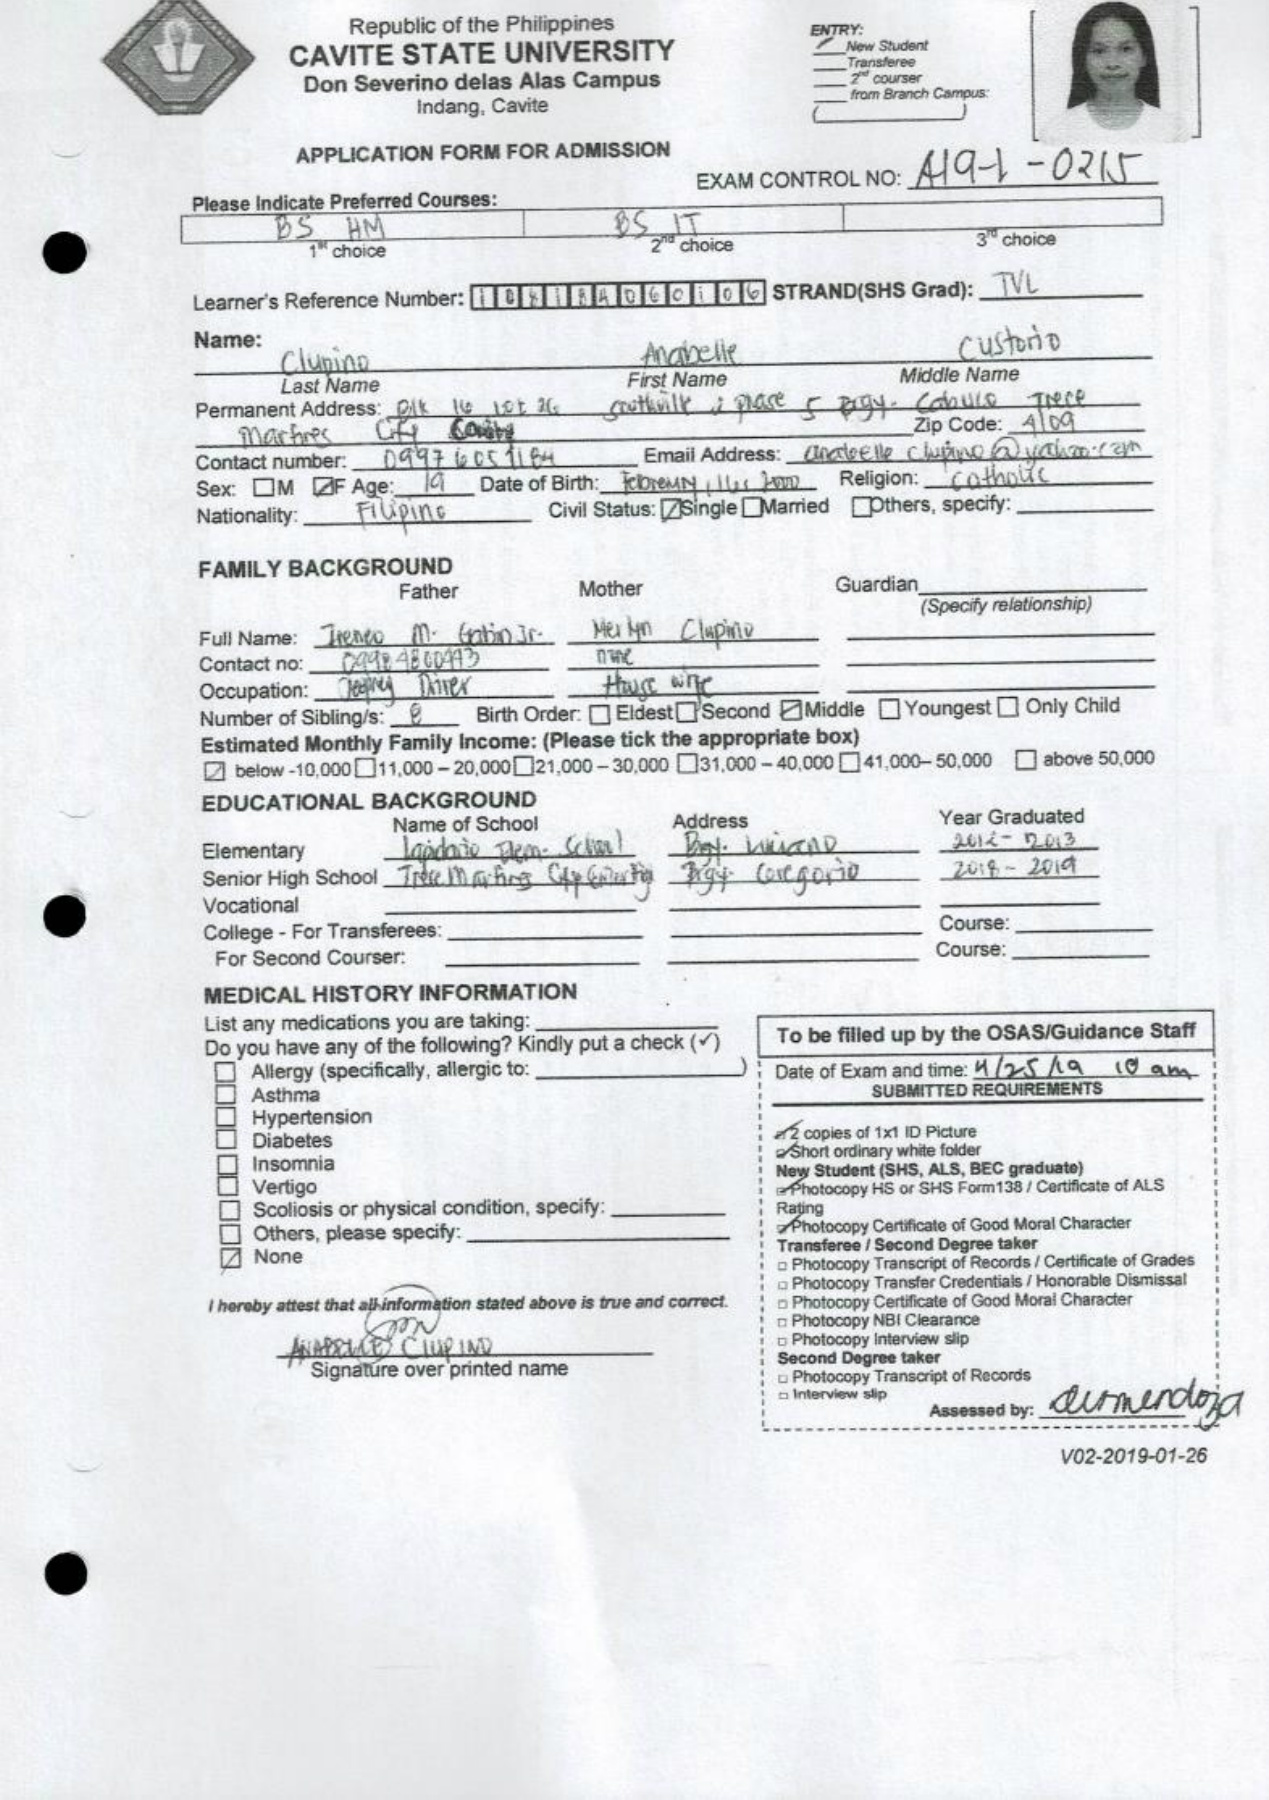 Republic of the Philippines
CAVITE STATE UNIVERSITY
Don Severino delas Alas Campus
Indang, Cavite
ENTRY:
New Student
Transferee
2nd courser
from Branch Campus:
APPLICATION FORM FOR ADMISSION
EXAM CONTROL NO: A19-1-0215
Please Indicate Preferred Courses:
BS HM BS IT
1st choice 2nd choice 3rd choice
Learner's Reference Number: STRAND(SHS Grad): TVL
Name:
Clupino Anabelle Custorio
Last Name First Name Middle Name
Permanent Address: Blk 16 lot 36 southville 2 phase 5 Brgy. Cabuco Trece
Martires City Cavite Zip Code: 4109
Contact number: Email Address:
Sex: M F Age: 19 Date of Birth: February, 2000 Religion: Catholic
Nationality: Filipino Civil Status: Single Married Others, specify:
FAMILY BACKGROUND
Father Mother Guardian
(Specify relationship)
Full Name: M. Jr. Clupino
Contact no: none
Occupation: Driver House wife
Number of Sibling/s: 8 Birth Order: Eldest Second Middle Youngest Only Child
Estimated Monthly Family Income: (Please tick the appropriate box)
below -10,000 11,000 – 20,000 21,000 – 30,000 31,000 – 40,000 41,000– 50,000 above 50,000
EDUCATIONAL BACKGROUND
Name of School Address Year Graduated
Elementary Lapidario Elem. School Brgy. Luciano 2012 - 2013
Senior High School Trece Martires City Brgy. 2018 - 2019
Vocational
College - For Transferees: Course:
For Second Courser: Course:
MEDICAL HISTORY INFORMATION
List any medications you are taking:
Do you have any of the following? Kindly put a check (✓)
Allergy (specifically, allergic to: )
Asthma
Hypertension
Diabetes
Insomnia
Vertigo
Scoliosis or physical condition, specify:
Others, please specify:
None
I hereby attest that all information stated above is true and correct.
ANABELLE CLUPINO
Signature over printed name
To be filled up by the OSAS/Guidance Staff
Date of Exam and time: 4/25/19 10 am
SUBMITTED REQUIREMENTS
2 copies of 1x1 ID Picture
Short ordinary white folder
New Student (SHS, ALS, BEC graduate)
Photocopy HS or SHS Form138 / Certificate of ALS
Rating
Photocopy Certificate of Good Moral Character
Transferee / Second Degree taker
Photocopy Transcript of Records / Certificate of Grades
Photocopy Transfer Credentials / Honorable Dismissal
Photocopy Certificate of Good Moral Character
Photocopy NBI Clearance
Photocopy Interview slip
Second Degree taker
Photocopy Transcript of Records
Interview slip
Assessed by:
V02-2019-01-26